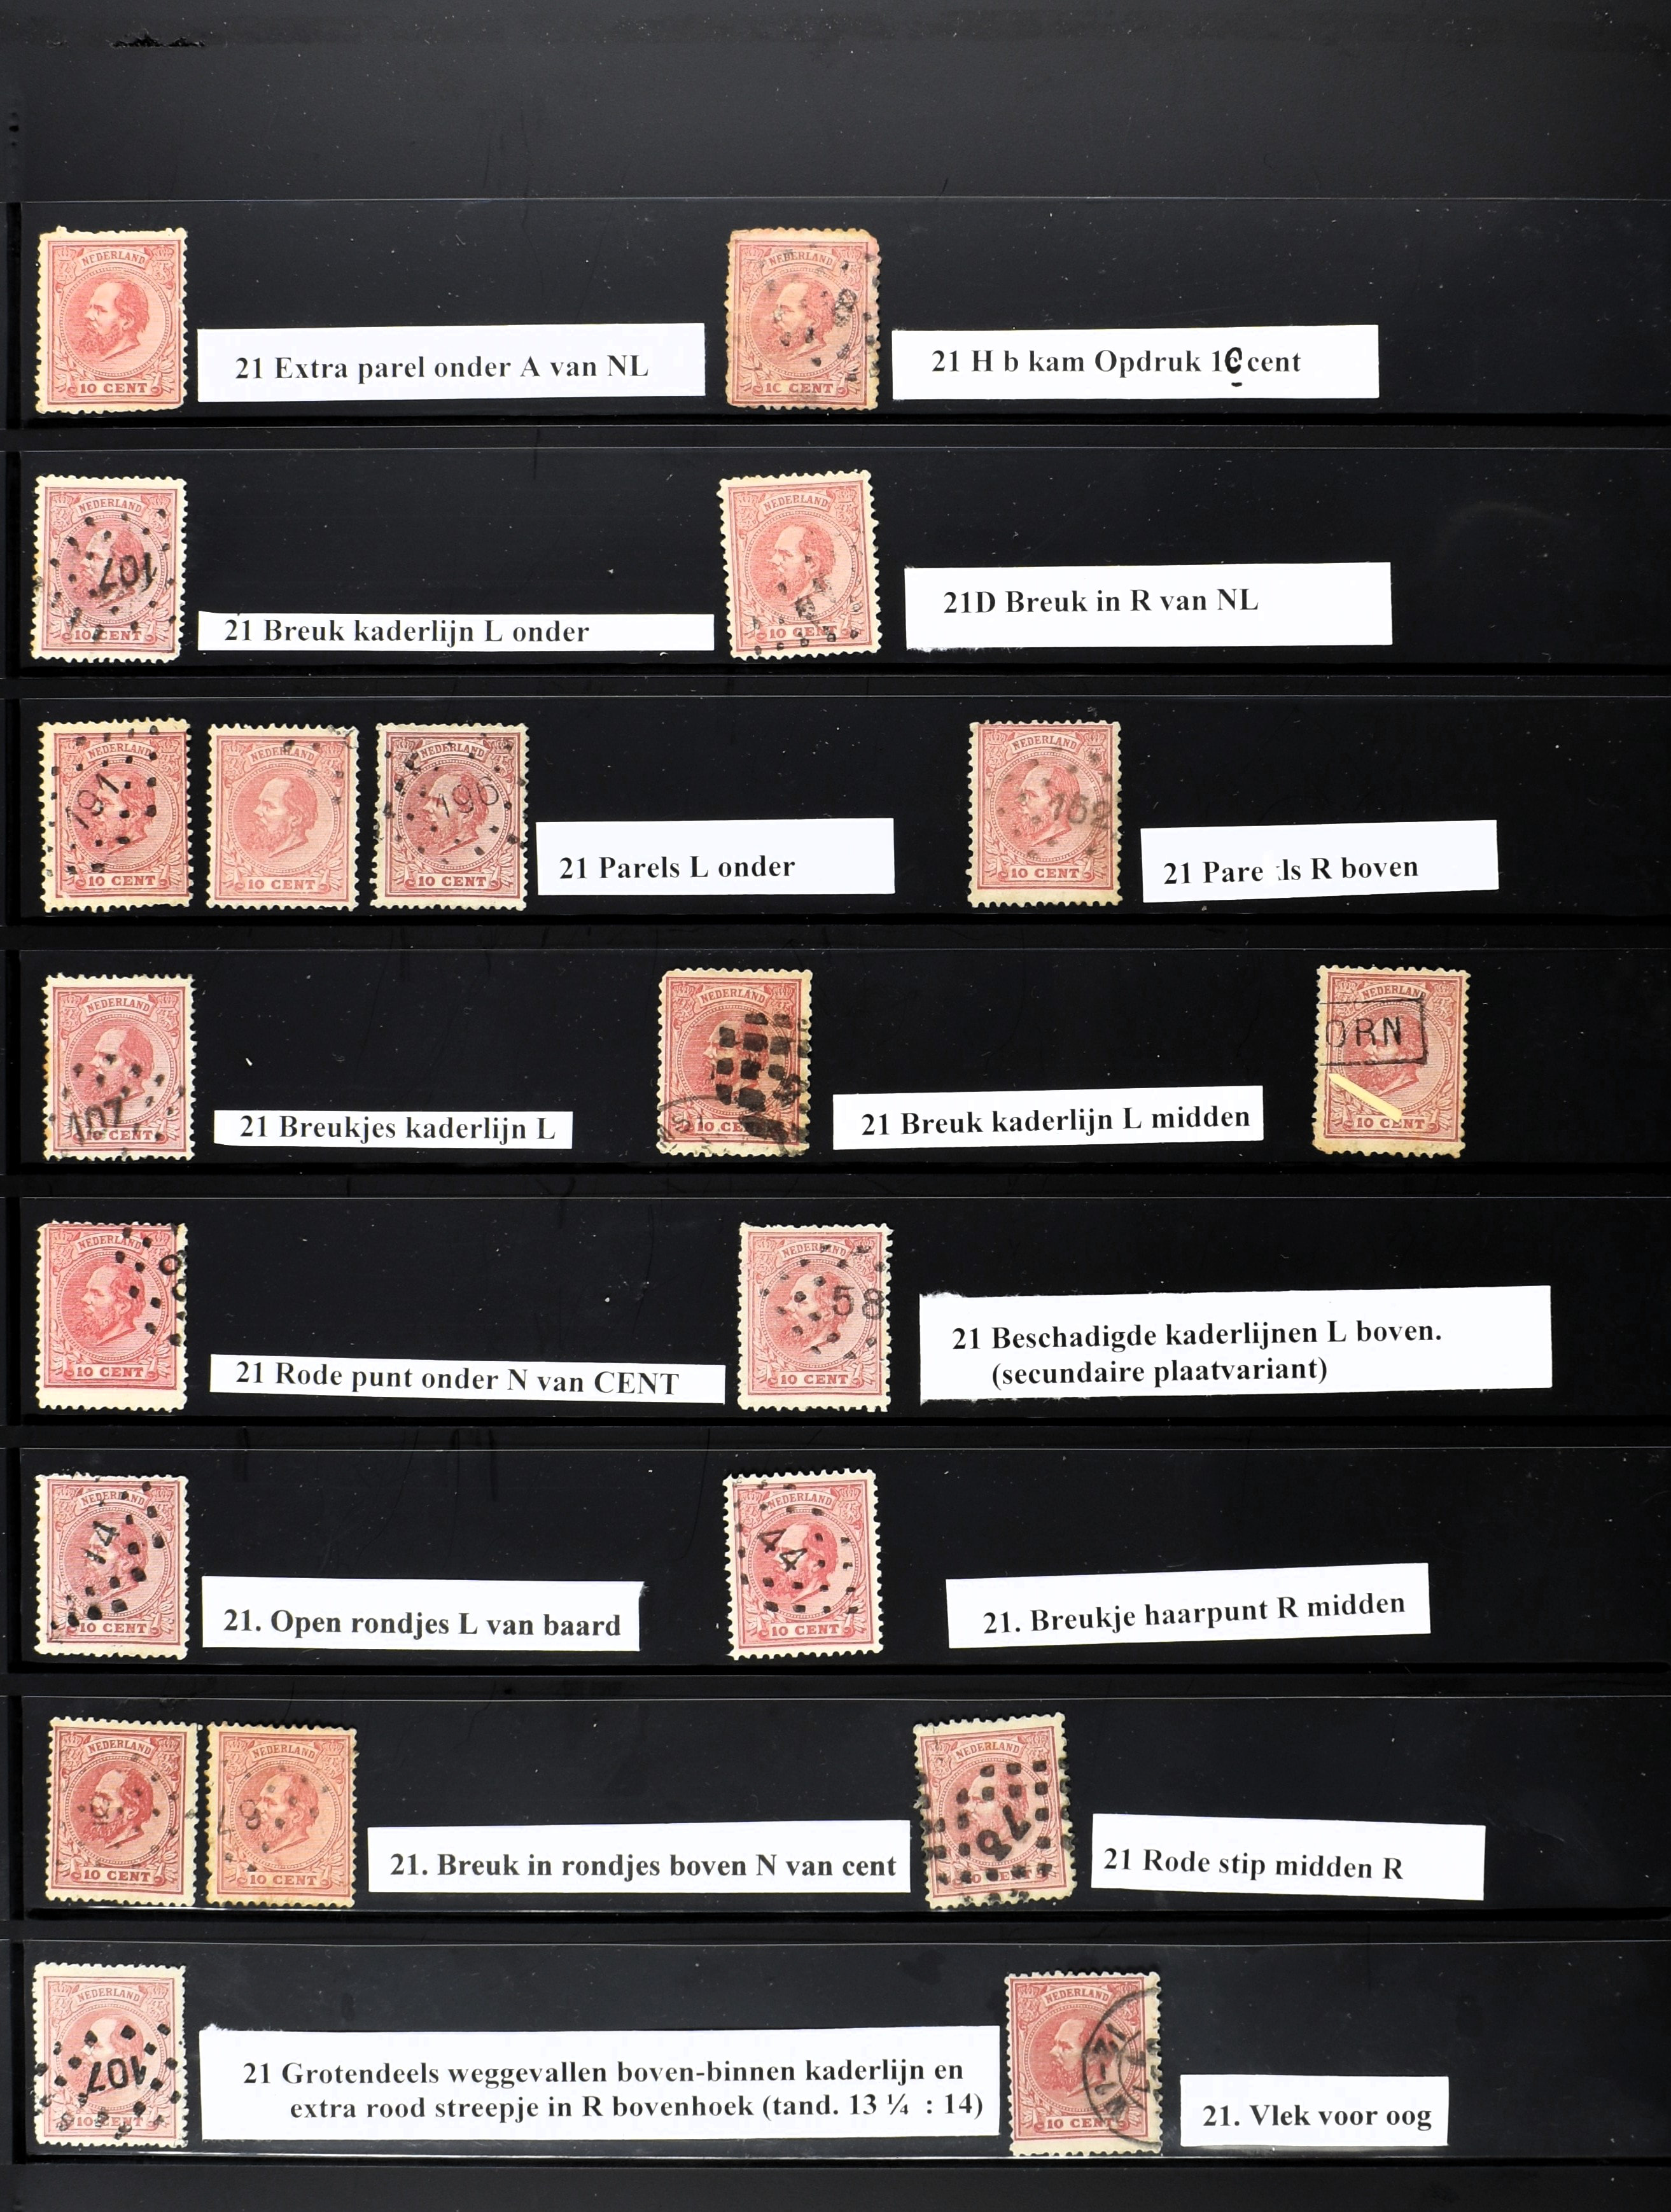 NEDERLAND
10 CENT
21 Extra parel onder A van NL
NEDERLAND
8
1C CENT
21 H b kam Opdruk 1C cent
NEDERLAND
107
10 CENT
21 Breuk kaderlijn L onder
NEDERLAND
10 CENT
21D Breuk in R van NL
NEDERLAND
191
10 CENT
NEDERLAND
10 CENT
NEDERLAND
196
10 CENT
21 Parels L onder
NEDERLAND
152
10 CENT
21 Pare ls R boven
NEDERLAND
107
10 CENT
21 Breukjes kaderlijn L
NEDERLAND
10 CENT
21 Breuk kaderlijn L midden
NEDERLAND
ORN
10 CENT
NEDERLAND
10 CENT
21 Rode punt onder N van CENT
NEDERLAND
58
10 CENT
21 Beschadigde kaderlijnen L boven.
(secundaire plaatvariant)
NEDERLAND
10 CENT
21. Open rondjes L van baard
NEDERLAND
44
10 CENT
21. Breukje haarpunt R midden
NEDERLAND
10 CENT
NEDERLAND
10 CENT
21. Breuk in rondjes boven N van cent
NEDERLAND
76
21 Rode stip midden R
NEDERLAND
107
10 CENT
21 Grotendeels weggevallen boven-binnen kaderlijn en
extra rood streepje in R bovenhoek (tand. 13 ¼ : 14)
NEDERLAND
10 CENT
21. Vlek voor oog